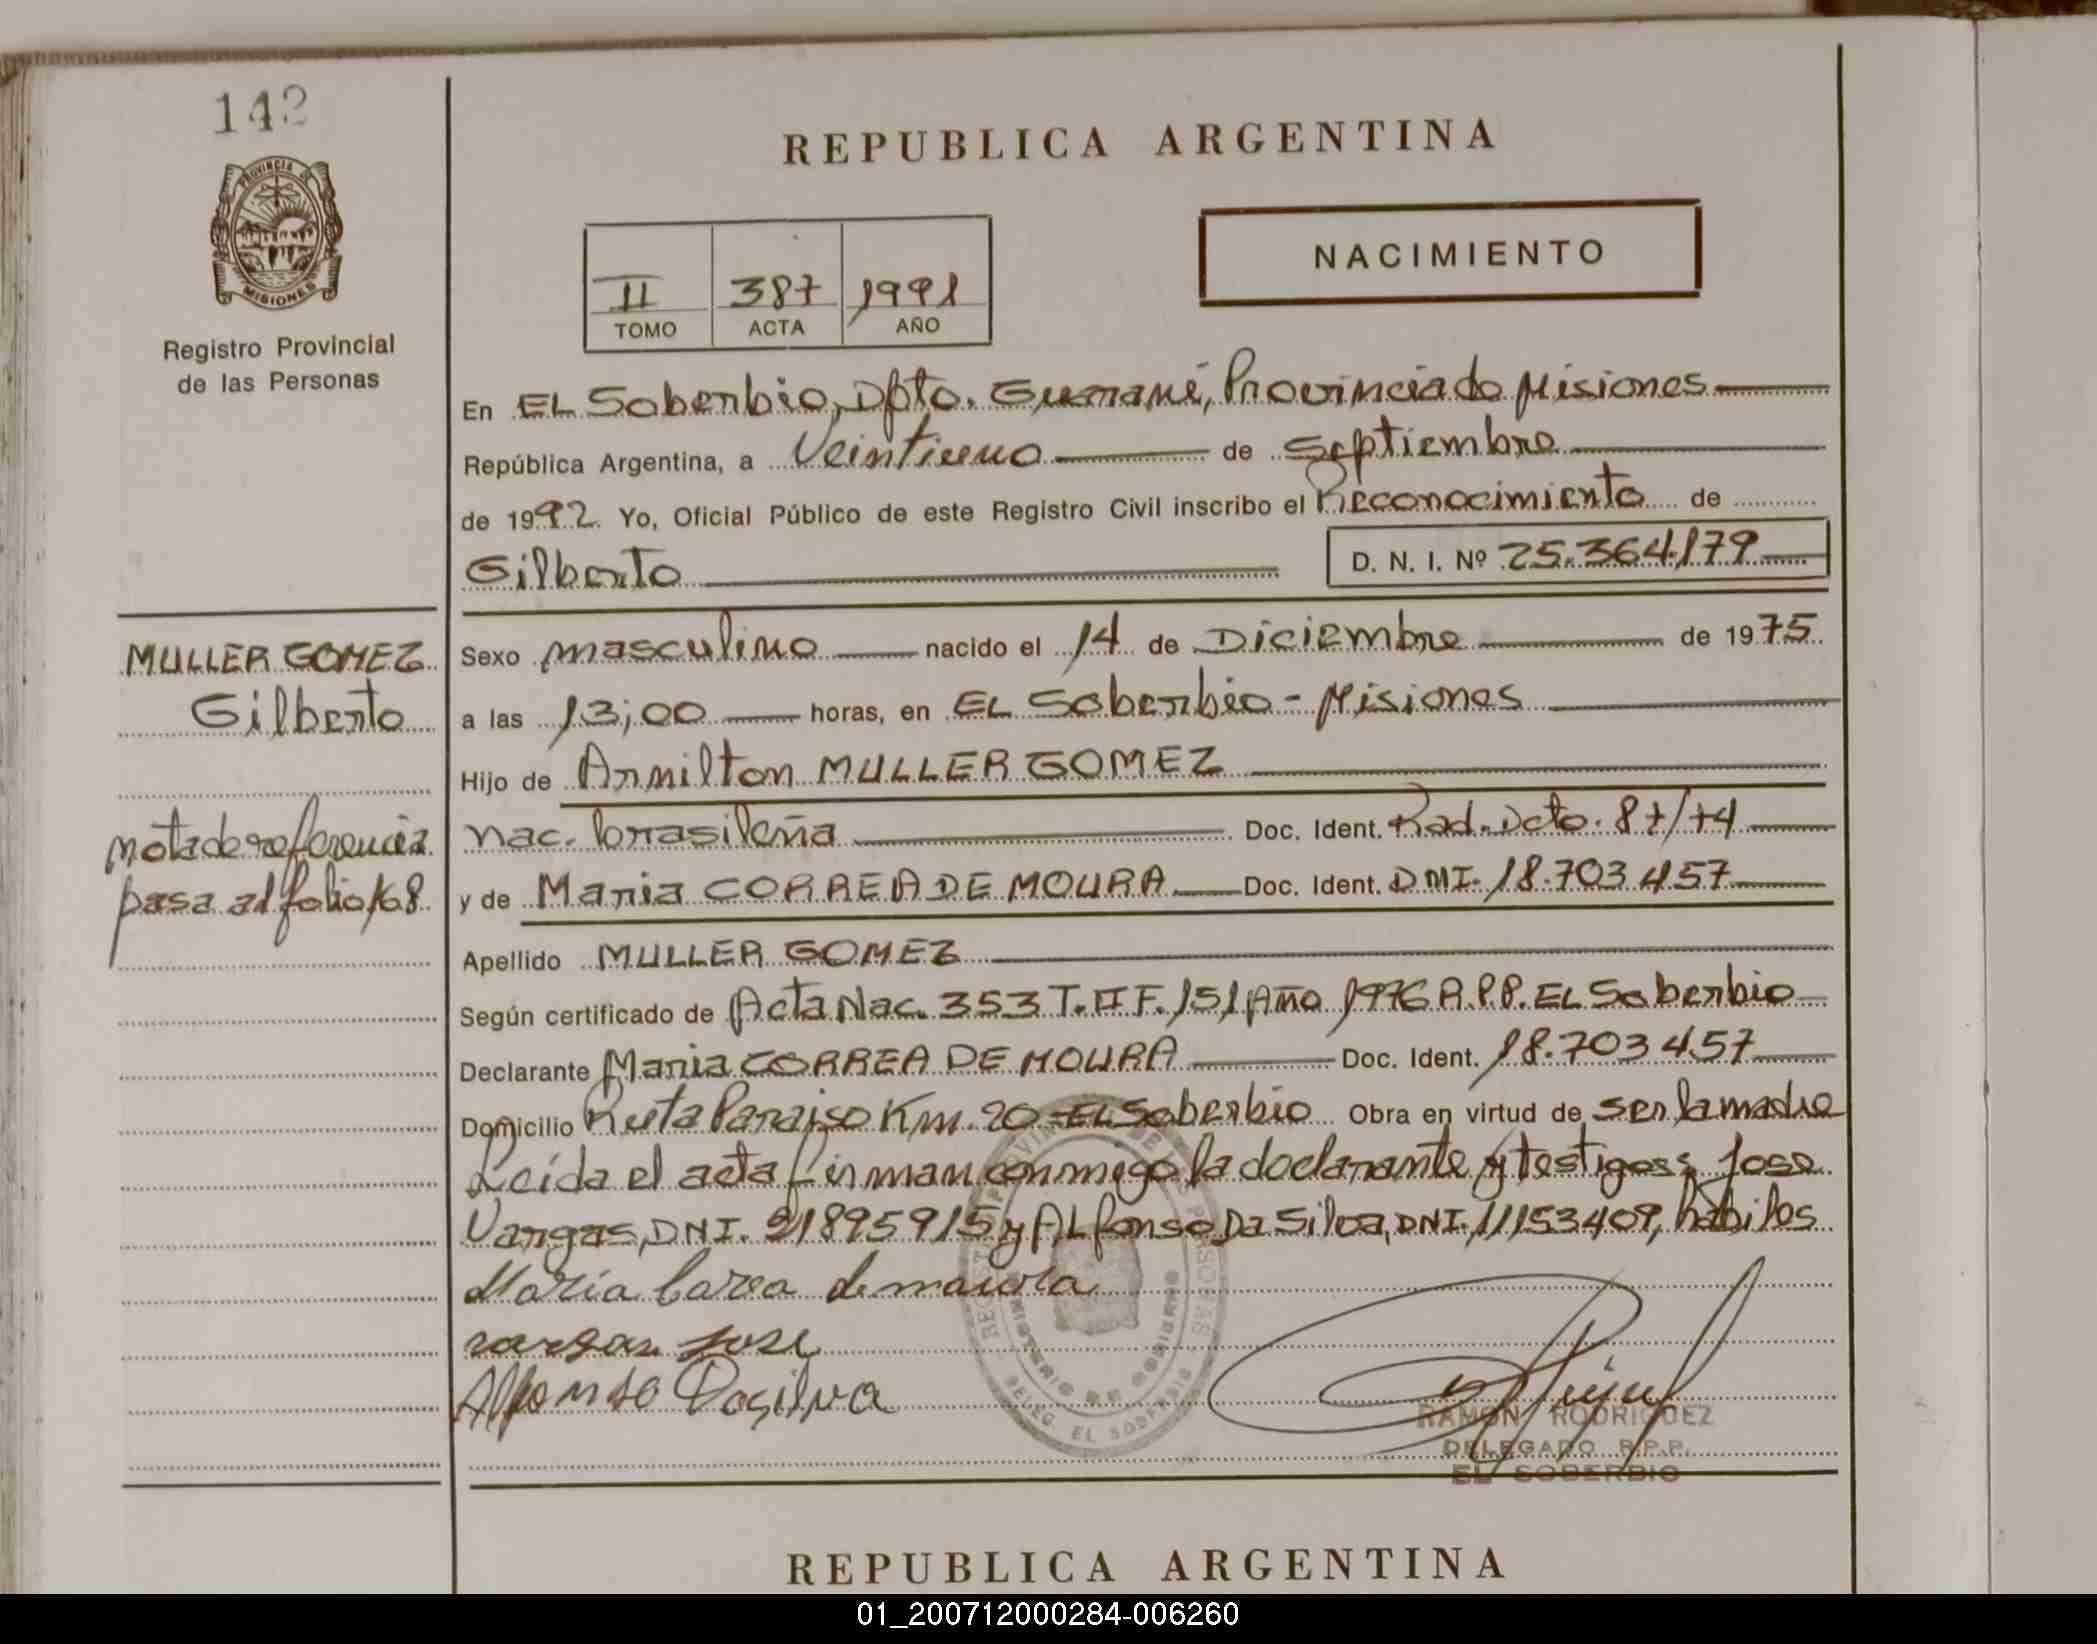 142
REPUBLICA ARGENTINA
PROVINCIA DE
MISIONES
NACIMIENTO
II 387 1991
TOMO ACTA AÑO
Registro Provincial
de las Personas
En EL Soberbio, Dpto. Guaraní, Provincia de Misiones
República Argentina, a Veintiuno de Septiembre
de 1992. Yo, Oficial Público de este Registro Civil inscribo el Reconocimiento de
Gilberto D. N. I. Nº 25.364.179
MULLER GOMEZ
Gilberto
Sexo masculino nacido el 14 de Diciembre de 1975.
a las 13;00 horas, en EL Soberbio - Misiones
Hijo de Armilton MULLER GOMEZ
nota de referencia
pasa al folio 168
nac. brasileña Doc. Ident. Rad. Dcto. 87/74
y de Maria CORREA DE MOURA Doc. Ident. DNI. 18.703.457
Apellido MULLER GOMEZ
Según certificado de Acta Nac. 353 T. II F. 151, Año 1976 R.P.P. EL Soberbio
Declarante Maria CORREA DE MOURA Doc. Ident. 18.703457
Domicilio Ruta Paraiso Km. 20 - EL Soberbio Obra en virtud de ser la madre
Leída el acta firman conmigo la declarante y testigos: Jose
Vargas, DNI. 21895915 y ALfonso Da Silva, DNI. 11153409, hábiles
Maria Corea de maura
vargas Jose
Alfonso Dasilva
DELEG. EL SOBERBIO
RAMON RODRIGUEZ
DELEGADO R.P.P.
EL SOBERBIO
REPUBLICA ARGENTINA
01_200712000284-006260